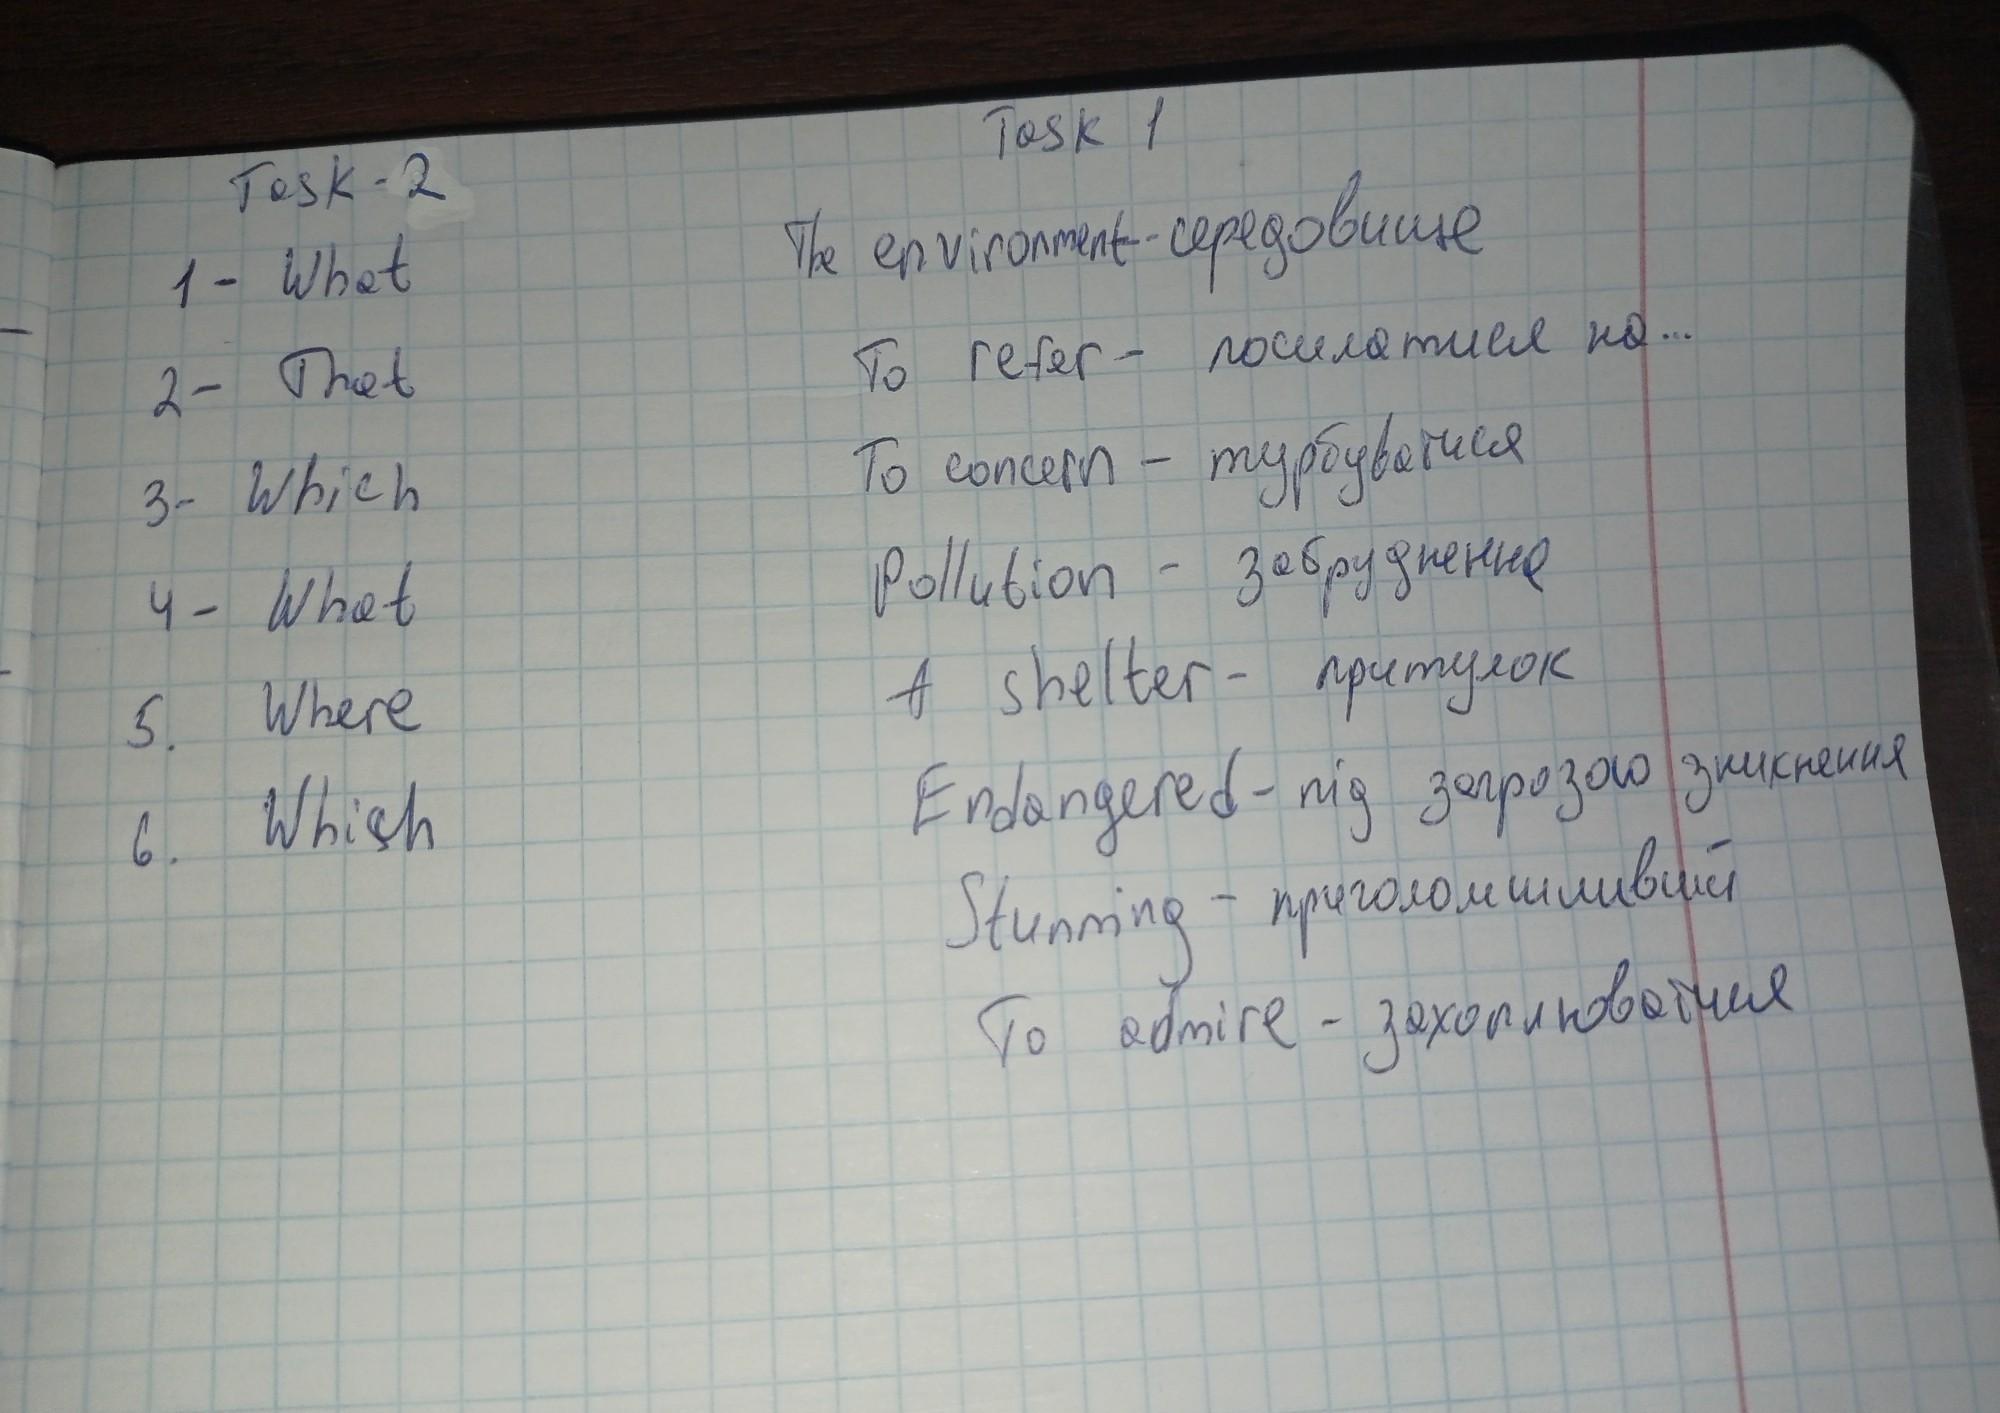 Task 1
The environment - середовище
To refer - посилатися на...
To concern - турбуватися
Pollution - забруднення
A shelter - притулок
Endangered - під загрозою зникнення
Stunning - приголомшливий
To admire - захоплюватися
Task - 2
1 - What
2 - That
3 - Which
4 - What
5. Where
6. Which